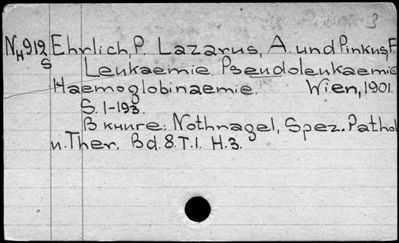 3
NH912 Ehrlich, P. Lazarus, A. und Pinkus, F.
S Leukaemie. Pseudoleukaemie
Haemoglobinaemie. Wien, 1901.
S. 1-193.
В книге: Nothnagel, Spez. Pathol
u. Ther. Bd. 8. T. I. H. 3.